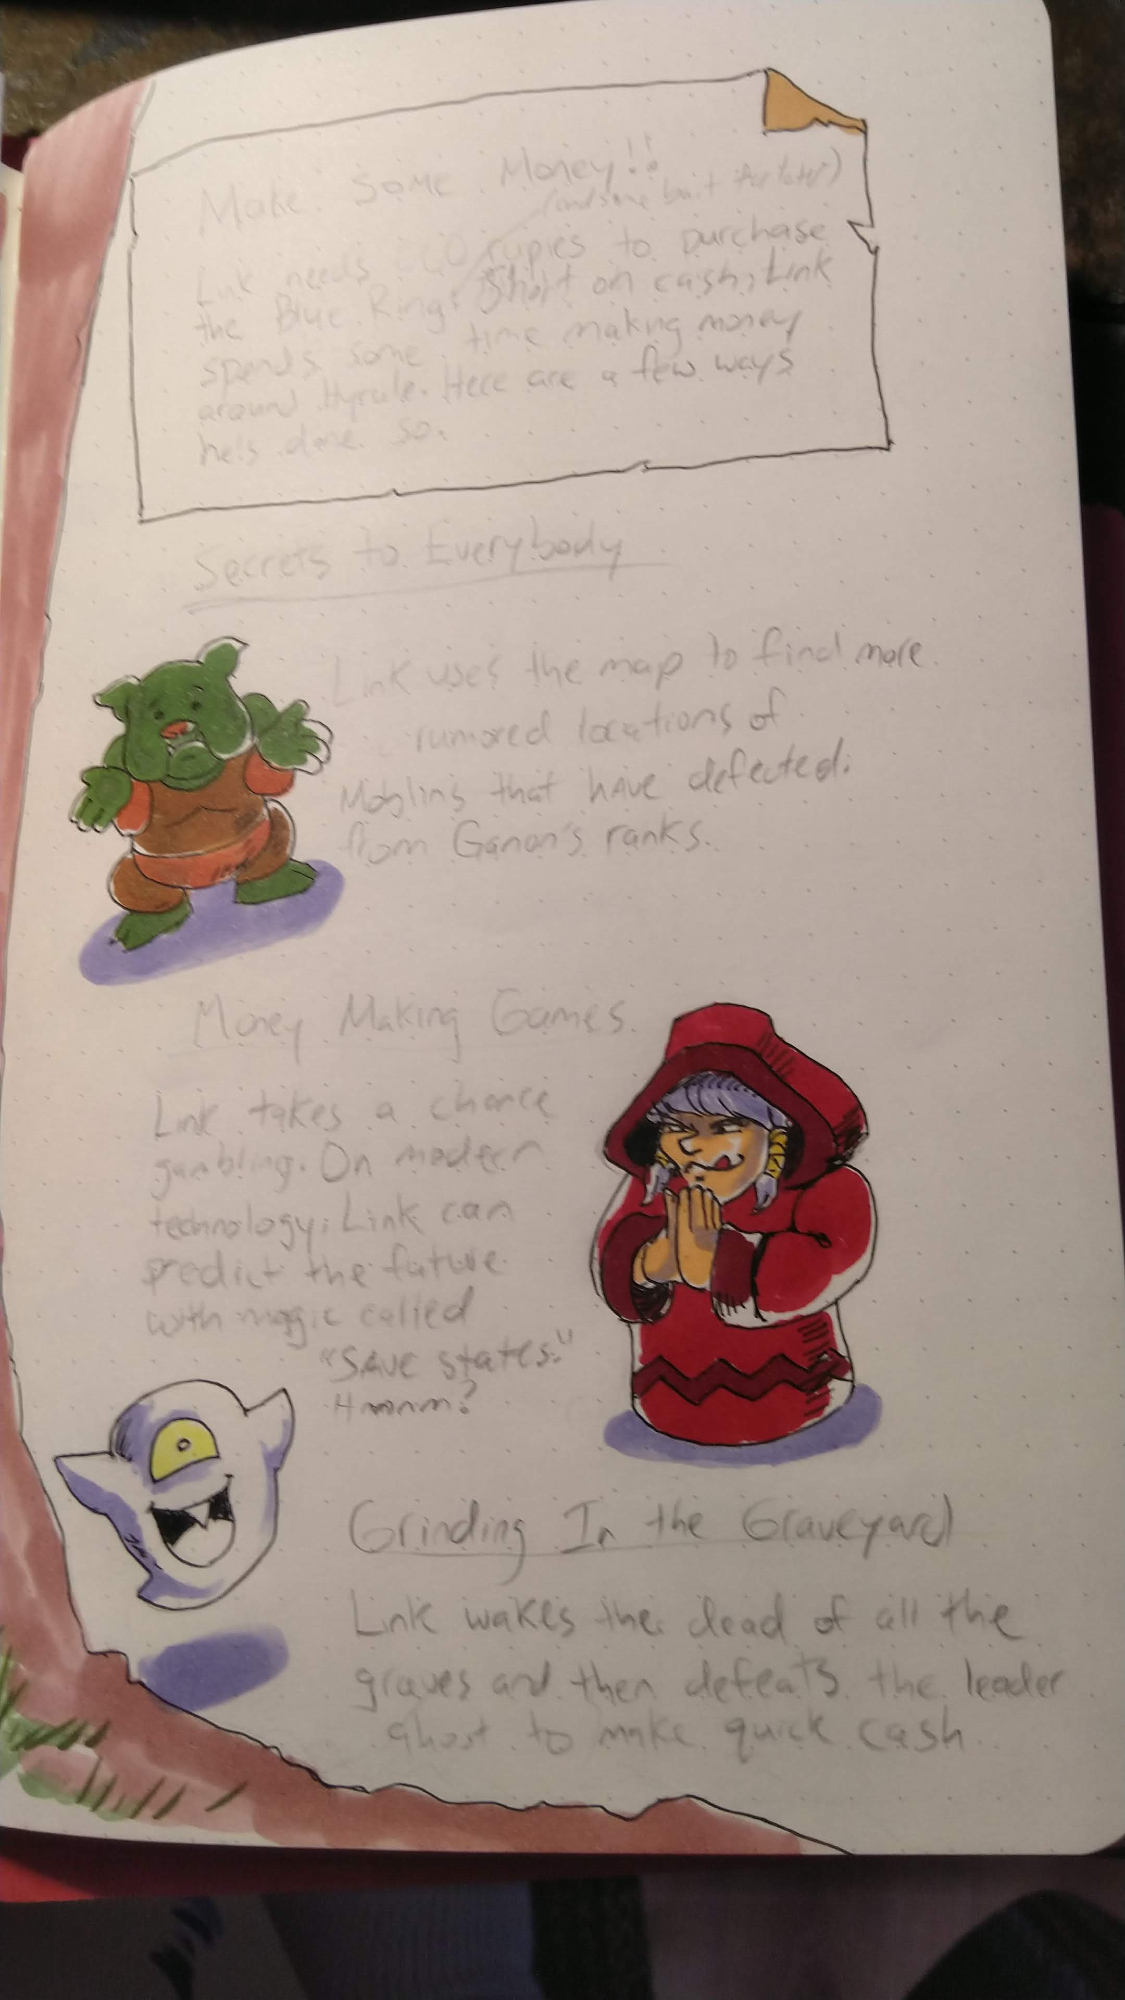 Make Some Money!!
(and some bait for later)
Link needs rupies to purchase
the Blue Ring. Short on cash, Link
spends some time making money
around Hyrule. Here are a few ways
he's done so.
Secrets to Everybody
Link uses the map to find more
rumored locations of
Moblins that have defected
from Ganon's ranks.
Money Making Games
Link takes a chance
gambling. On modern
technology, Link can
predict the future
with magic called
"SAVE states."
Hmmm?
Grinding In the Graveyard
Link wakes the dead of all the
graves and then defeats the leader
ghost to make quick cash